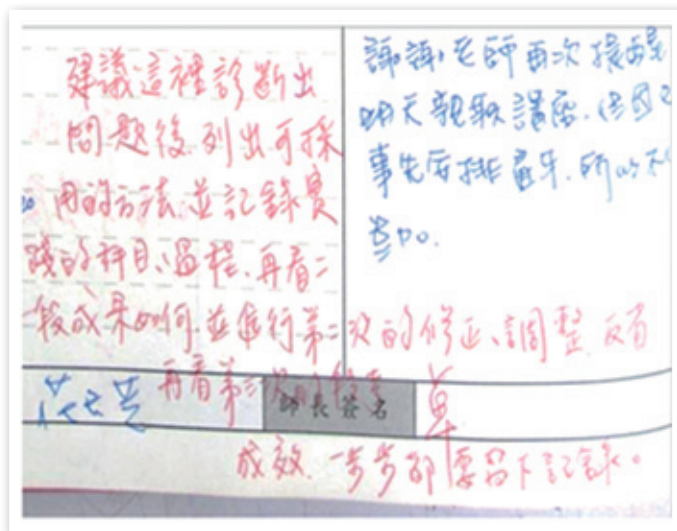 建議這裡診斷出
問題後,列出可採
用的方法,並記錄實
踐的科目、過程,再看二
段成果如何,並進行第二次的修正、調整,反省
再看第二次的
成效,一步步都要留下記錄。
謝謝老師再次提醒
明天親職講座,
事先安排看牙,所以不
參加。
師長簽名